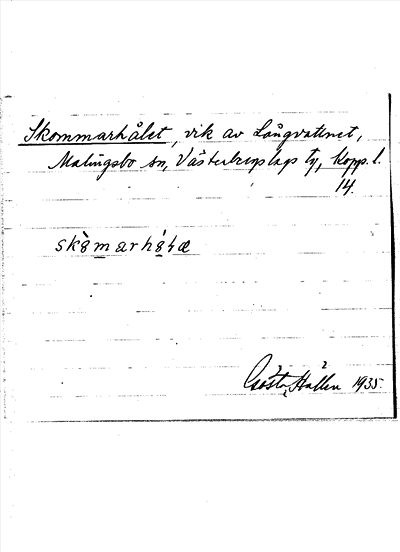 Skommarhålet, vik av Långvattnet,
Malingsbo sn, Västerbergslags ty, Kopp. l.
14.
skåmarhålæ
Gösta Hållén 1935